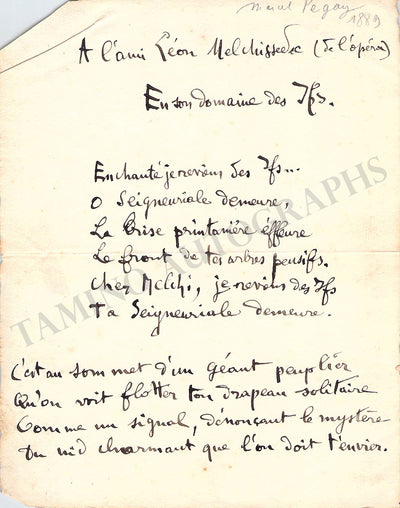 Marcel Legay
1889
A l'ami Léon Melchissedec (de l'opéra)
En son domaine des Ifs.
Enchanté je reviens des Ifs...
O Seigneuriale demeure,
La brise printanière éffleure
Le front de tes arbres pensifs.
Chez Melchi, je reviens des Ifs
Ta Seigneuriale demeure.
C'est au sommet d'un géant peuplier
Qu'on voit flotter ton drapeau solitaire
Comme un signal, dénonçant le mystère
Du nid charmant que l'on doit t'envier.
TAMINO AUTOGRAPHS